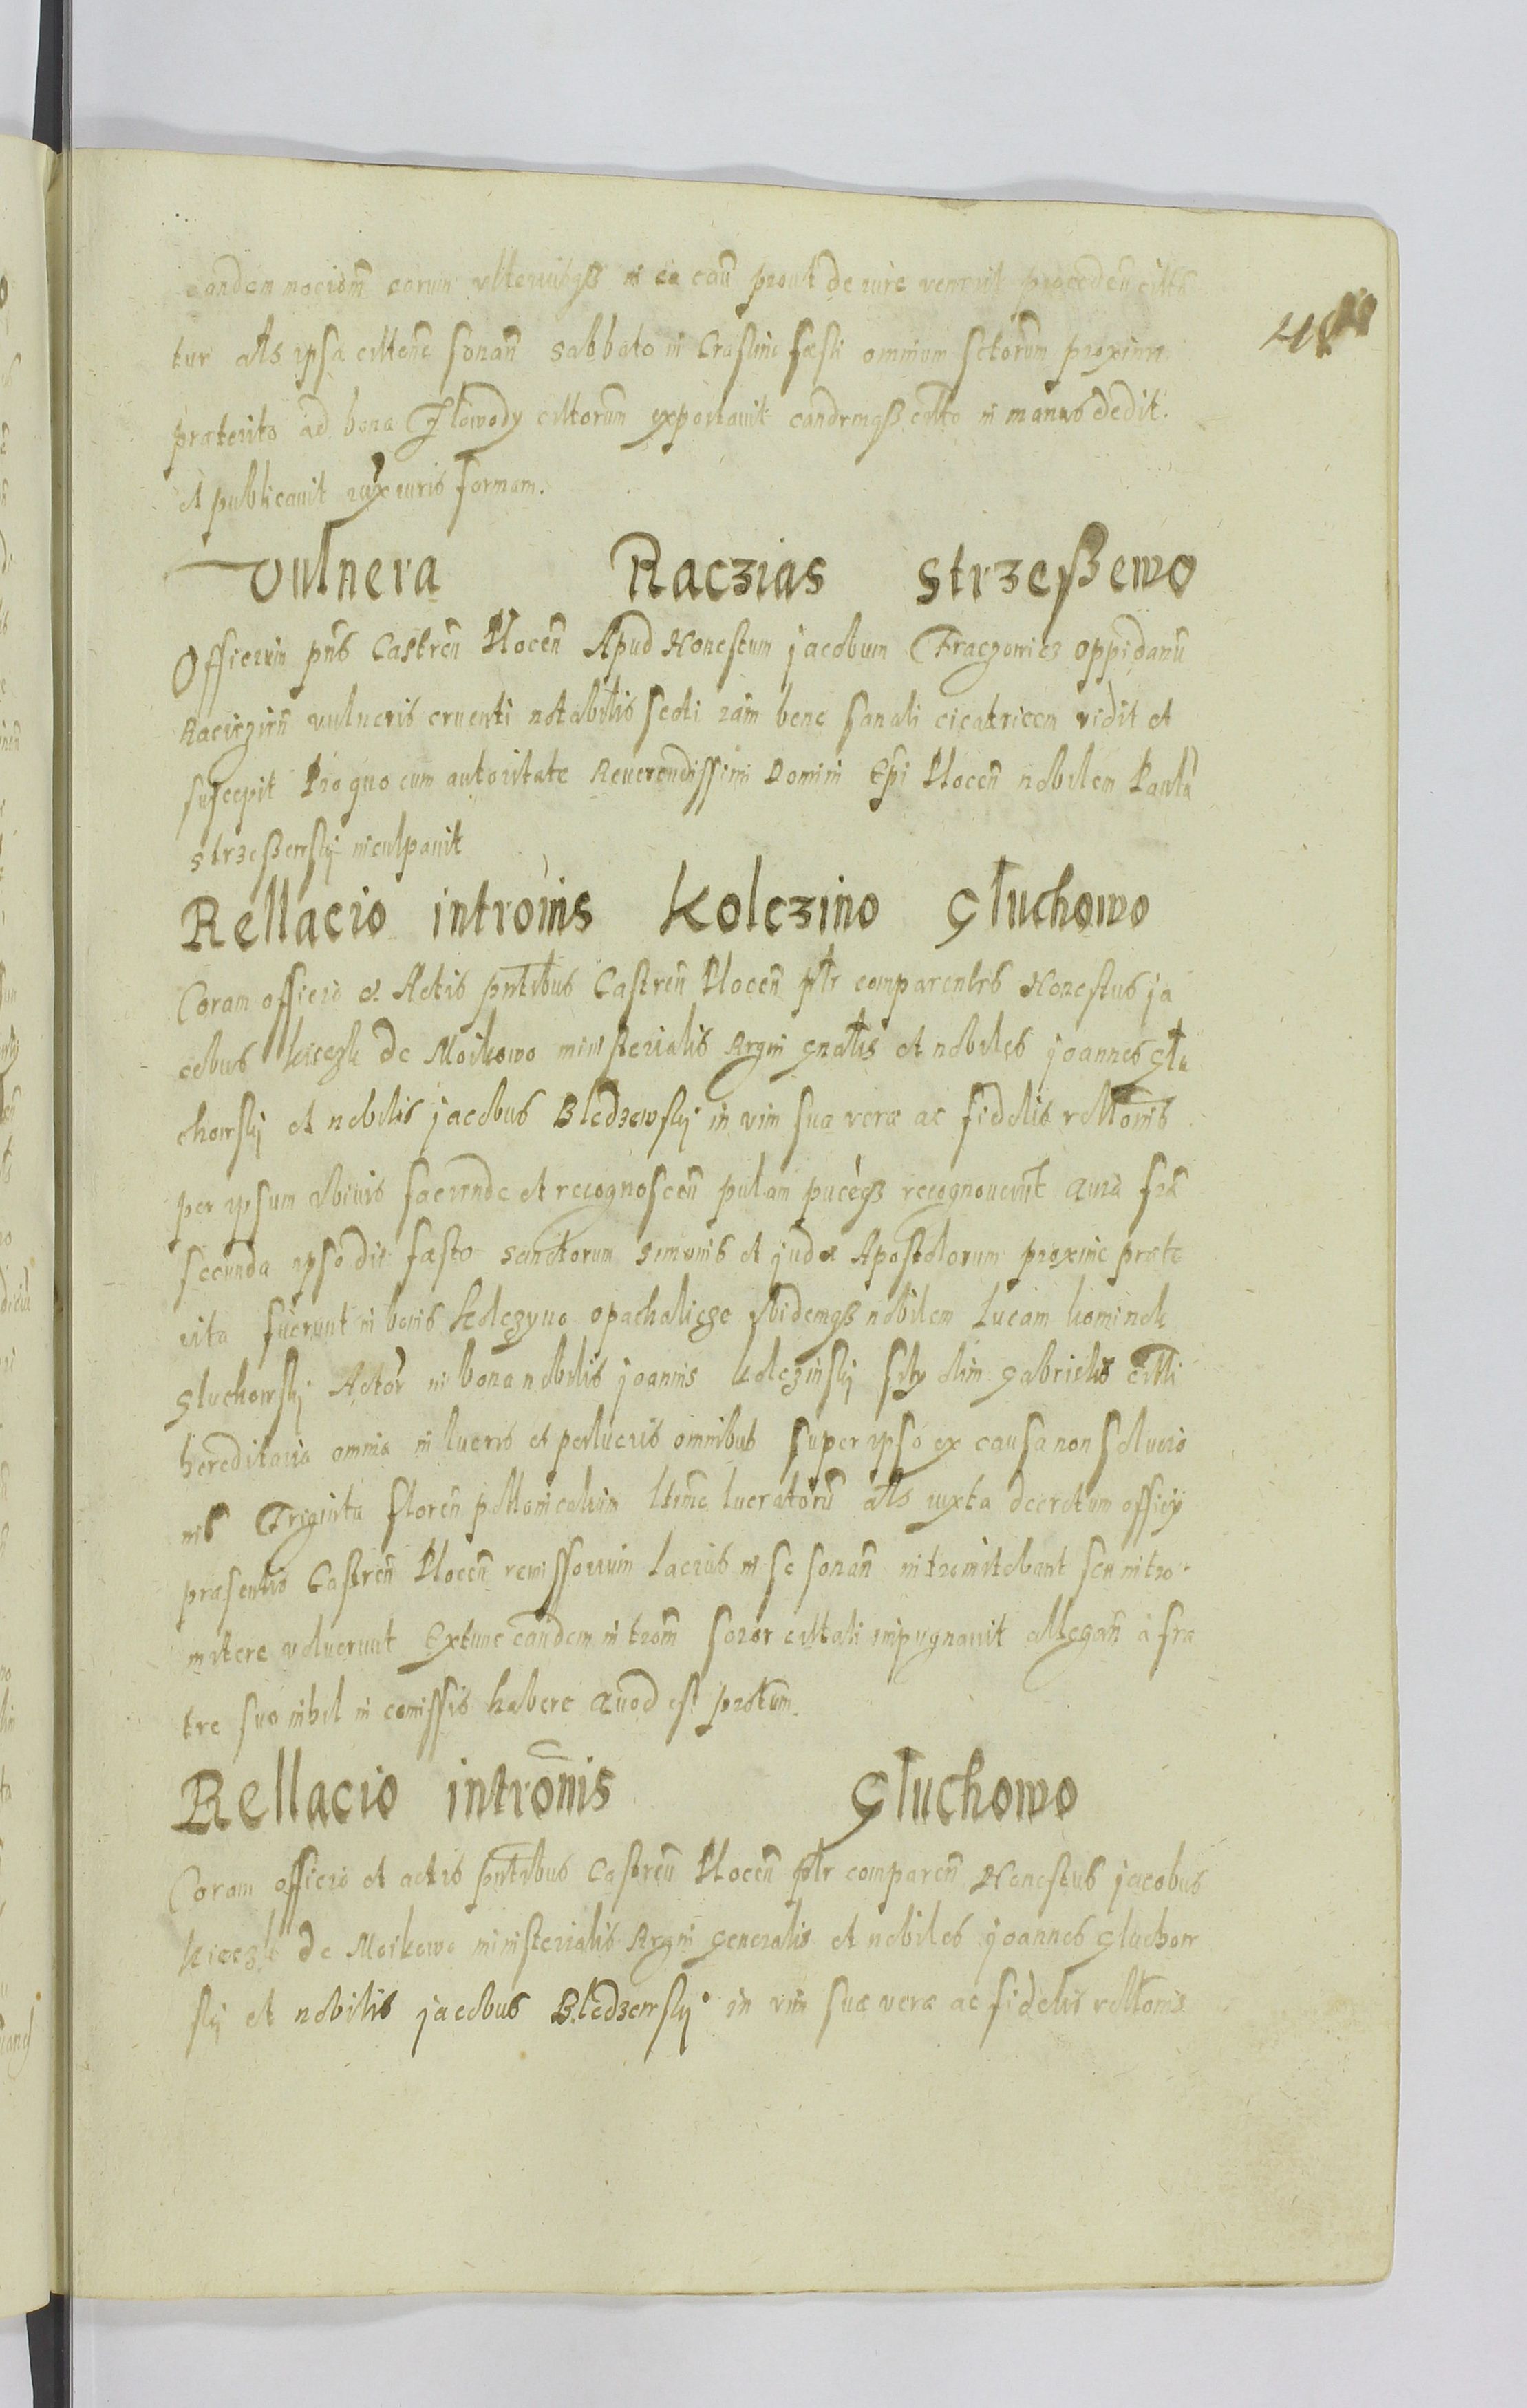 eandem nociom̃ earum ulteriusqß in ea cau prout de iure venerit procedeñ
tur als ipsa cittone sonañ sabbato in Crastino fæsti omnium sctorum proxime
præterito ad bona cittorum exportauit eandemqß citto in manus dedit.
et publicauit iux iuris formam.
Vulnera Raczias Strzeßewo
Officium pñs Castreñ Plоceñ Apud Honestum jacobum Fraczowicz oppidanũ
vulneris cruenti notabilis secti iam bene sanati cicatricem vidit et
suscepit Pro quo cum autoritate Reuerendissimi Domini Epi Ploceñ nobilem Paulũ
strzeßewskij inculpauit
Rellacio intromis Kolczino Głuchowo
Coram officio et Actis pntibus Castreñ Ploceñ pltr comparentes Honestus ja
cobus de Moikowo ministerialis Regni gnalis et nobiles joannes głu
chowskij et nobilis jacobus Bledzewskij in vim sua veræ ac fidelis relltonis
per ipsum obiuis faciende et recognosceñ palam puceqß recognouerunt Quia fria
secunda ipso die fæsto sanctorum simonis et judæ Apostolorum proxime præte
rita fuerunt in bonis Kolczyno opachalicze Ibidemqß nobilem Lucam kominek
gluchowskij Actor in bona nobilis joannis kolczinskij olim gabrielis citti
hereditaria omnia in lucris et perlucris omnibus super ipso ex causa non solucio
nis Triginta floreñ pollonicalium ltime lucratorũ als iuxta decretum officij
præsentis Castreñ Ploceñ remissorium lacius in se sonañ intromitebant seu intro
mitere voluerunt Extunc eandem introm̃ soror cittati impugnauit allegañ a fra
tre suo nihil in comissis habere Quod est protum.
Rellacio intromis Głuchowo
Coram officio et actis pntibus Castreñ Ploceñ pltr compareñ Honestus jacobus
de Moikowo ministerialis Regni generalis et nobiles joannes gluchow
skij et nobilis jacobus Bledzewskij in vim suæ veræ ac fidelis relltonis